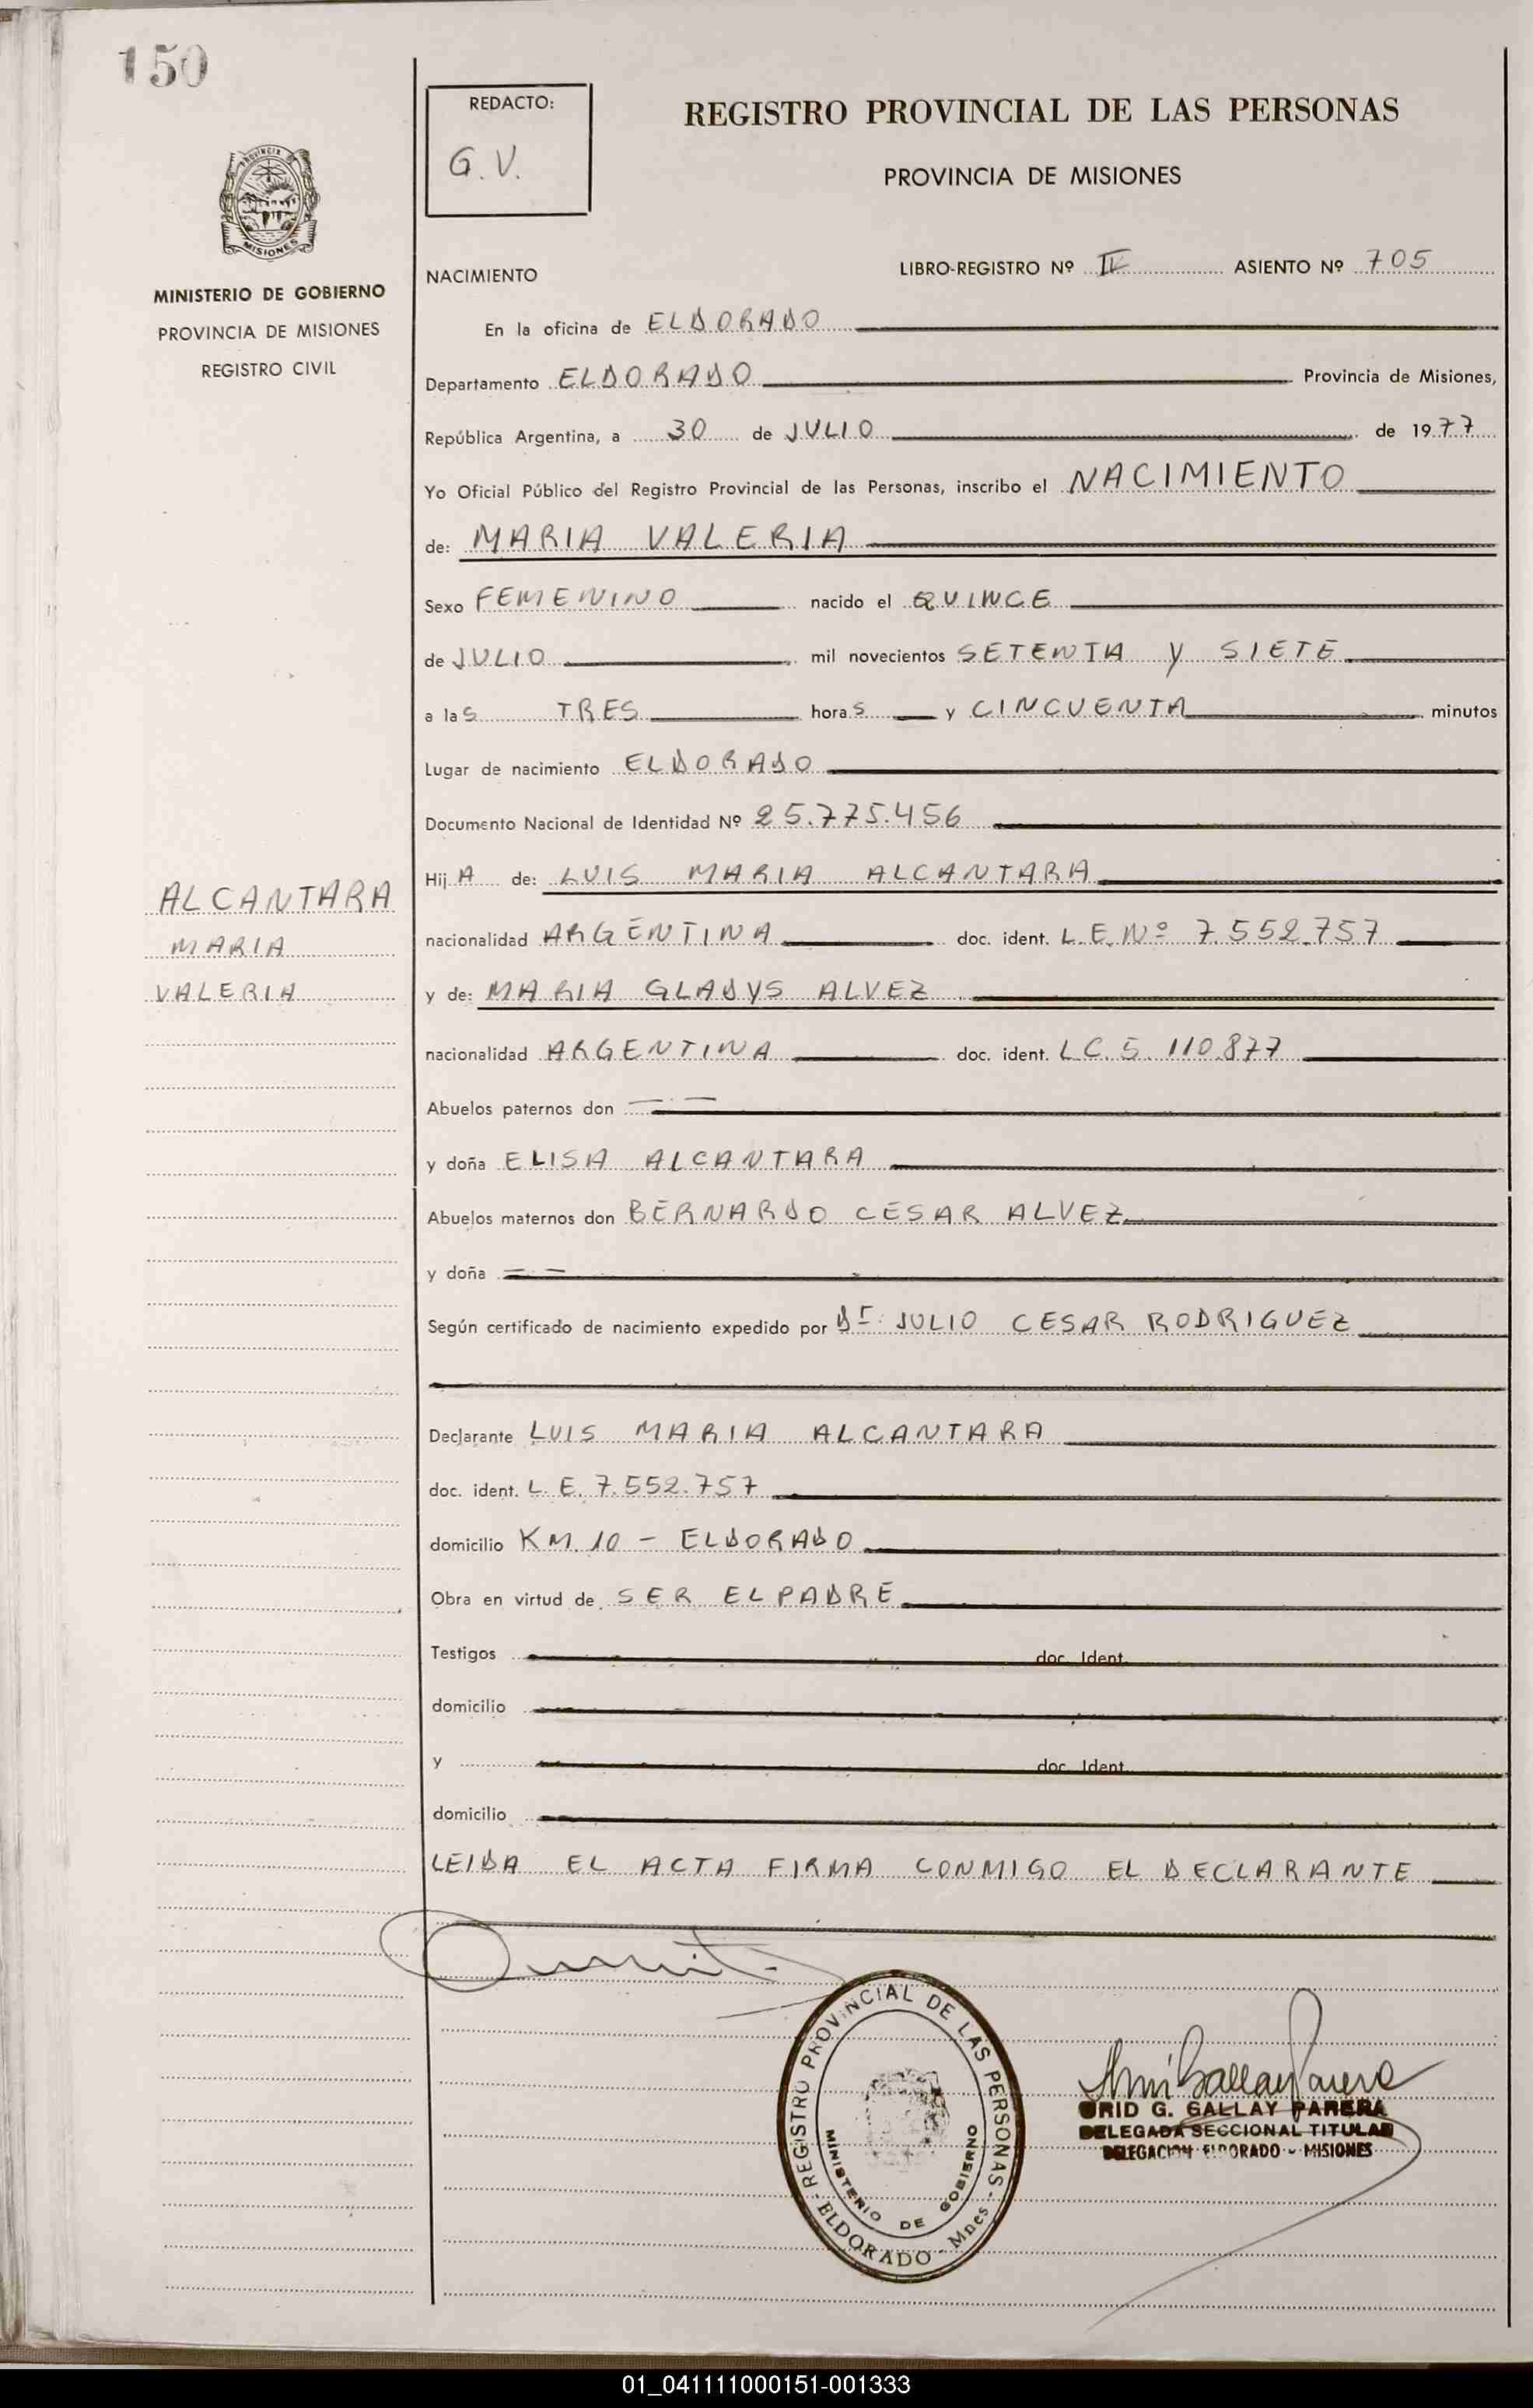 150
REDACTO:
G.V.
REGISTRO PROVINCIAL DE LAS PERSONAS
PROVINCIA DE MISIONES
PROVINCIA DE
MISIONES
MINISTERIO DE GOBIERNO
PROVINCIA DE MISIONES
REGISTRO CIVIL
NACIMIENTO
LIBRO-REGISTRO Nº IV ASIENTO Nº 705
En la oficina de ELDORADO
Departamento ELDORADO Provincia de Misiones,
República Argentina, a 30 de JULIO de 1977
Yo Oficial Público del Registro Provincial de las Personas, inscribo el NACIMIENTO
de: MARIA VALERIA
Sexo FEMENINO nacido el QUINCE
de JULIO mil novecientos SETENTA Y SIETE
a las TRES horas y CINCUENTA minutos
Lugar de nacimiento ELDORADO
Documento Nacional de Identidad Nº 25.775.456
Hij A de: LUIS MARIA ALCANTARA
ALCANTARA
MARIA
VALERIA
nacionalidad ARGENTINA doc. ident. L.E. Nº 7.552.757
y de: MARIA GLADYS ALVEZ
nacionalidad ARGENTINA doc. ident. L.C. 5.110.877
Abuelos paternos don — —
y doña ELISA ALCANTARA
Abuelos maternos don BERNARDO CESAR ALVEZ
y doña — —
Según certificado de nacimiento expedido por Dr. JULIO CESAR RODRIGUEZ
Declarante LUIS MARIA ALCANTARA
doc. ident. L.E. 7.552.757
domicilio KM. 10 - ELDORADO
Obra en virtud de SER EL PADRE
Testigos doc. Ident.
domicilio
y doc. Ident.
domicilio
LEIDA EL ACTA FIRMA CONMIGO EL DECLARANTE
REGISTRO PROVINCIAL DE LAS PERSONAS - ELDORADO - Mnes -
MINISTERIO DE GOBIERNO
G. GALLAY PARERA
DELEGADA SECCIONAL TITULAR
DELEGACION ELDORADO - MISIONES
01_041111000151-001333